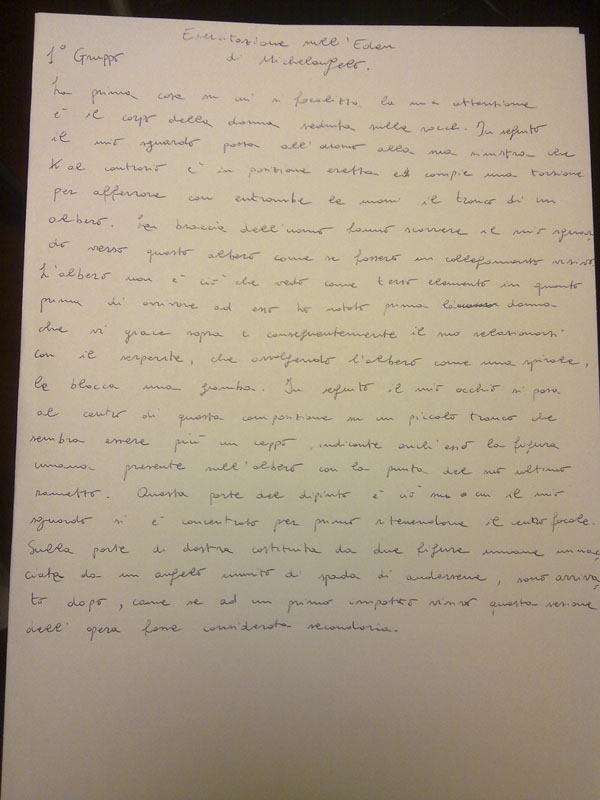 Esercitazione sull'Eden
1° Gruppo di Michelangelo.
La prima cosa su cui si focalizza la mia attenzione
è il corpo della donna seduta sulla rocci. In seguito
il mio sguardo passa all'uomo alla sua sinistra che
al contrario è in posizione eretta ed compie una torsione
per afferrare con entrambe le mani il tronco di un
albero. Le braccia dell'uomo fanno scorrere il mio sguar
do verso questo albero come se fossero un collegamento visivo
L'albero non è ciò che vedo come terzo elemento in quanto
prima di arrivare ad esso ho notato prima la donna
che vi giace sopra e conseguentemente il suo relazionarsi
con il serpente, che avvolgendo l'albero come una spirale,
le blocca una gamba. In seguito il mio occhio si posa
al centro di questa composizione su un piccolo tronco che
sembra essere più un ceppo, indicante anch'esso la figura
umana presente sull'albero con la punta del suo ultimo
rametto. Questa parte del dipinto è ciò su cui il mio
sguardo si è concentrato per primo ritenendone il centro focale.
Sulla parte di destra costituita da due figure umane minac
ciate da un angelo munito di spada di andarsene, sono arriva
to dopo, come se ad un primo impatto visivo questa sezione
dell'opera fosse considerata secondaria.